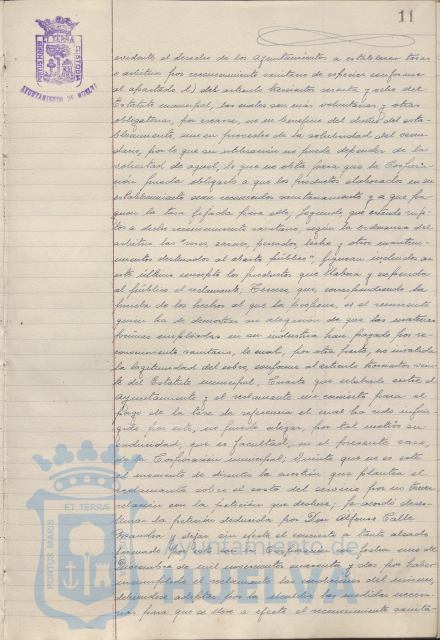 11
PORTUS MARIS ET TERRÆ CUSTODIA
AYUNTAMIENTO DE HUELVA
evidente el derecho de los Ayuntamientos a establecer tasas
o arbitrios por reconocimiento sanitario de especies conforme
al apartado d) del artículo trescientos sesenta y ocho del
Estatuto municipal, las cuales son más voluntarias y otras
obligatorias, por crearse, no en beneficio del dueño del esta-
blecimiento, sino en
dario, por lo que su utilización no puede depender de la
voluntad de aquel, lo que no obsta para que la Corpora-
ción pueda obligarle a que los productos elaborados en su
establecimiento sean reconocidos sanitariamente y a que pa-
guen la tasa fijada para ello; Segundo, que estando suje-
tos a dicho reconocimiento sanitario, según la ordenanza del
arbitrio las "aves, carnes, pescados, leche y otros manteni-
mientos destinados al abasto público", figuran incluidos en
este último concepto los productos que elabora y expende
al público el reclamante; Tercero, que, correspondiendo la
prueba de los hechos al que la propone, es el recurrente
quien ha de demostrar su alegación de que las materias
primas empleadas en su industria han pagado por re-
conocimiento sanitario, lo cual, por otra parte, no invalida
la legitimidad del cobro, conforme al artículo trescientos
del Estatuto municipal; Cuarto que celebrado entre el
Ayuntamiento y el reclamante un concierto para el
pago de la tasa de referencia el cual ha sido infrin-
gido por este, no puede alegar, por tal motivo su
indebidad, que es facultad, en el presente caso,
de la Corporación municipal; Quinto que no es este
el momento de discutir la cuestión que plantea el
reclamante sobre el costo del servicio por no tener
relación con la petición que deduce; Se acordó deses-
timar la petición deducida por Don Alfonso Calle
y dejar sin efecto el concierto de tanto alzado
con fecha uno de
Diciembre de mil novecientos cuarenta y dos por haber
incumplido el reclamante las condiciones del mismo,
debiéndose adoptar por la Alcaldía las medidas necesa-
rias para que se lleve a efecto el reconocimiento sanita-
PORTUS MARIS ET TERRÆ
Ayuntamiento de